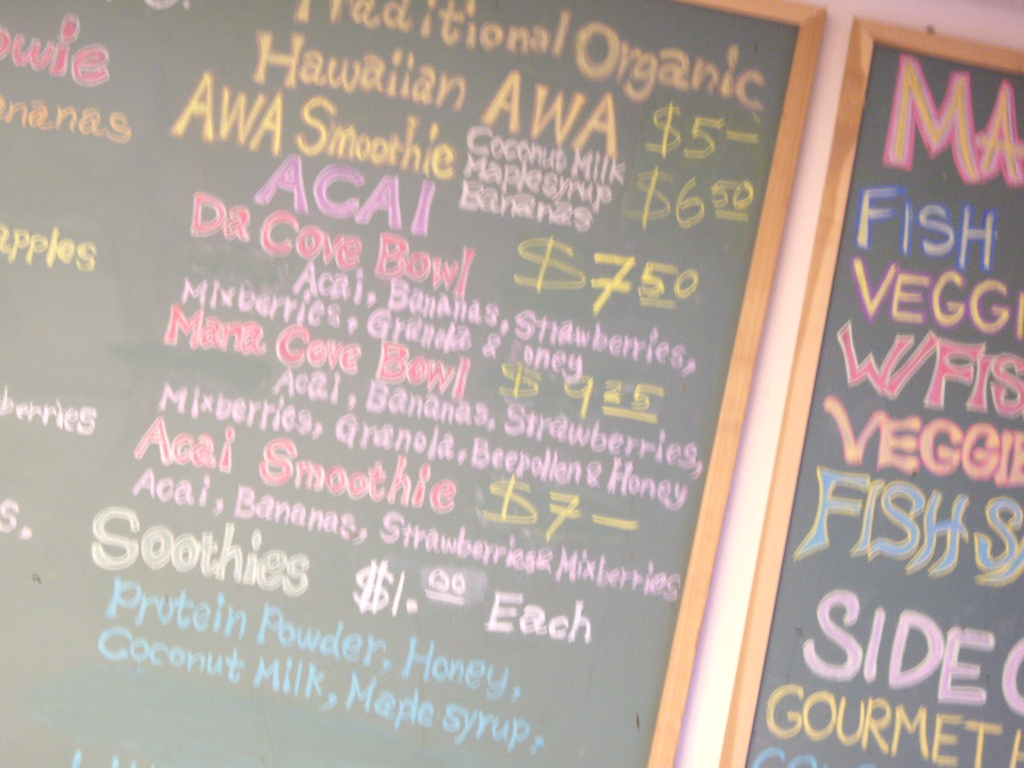 Traditional Organic
Hawaiian AWA $5-
AWA Smoothie Coconut Milk
Maplesyrup
Bananas $6 50
ACAI
Da Cove Bowl $7 50
Acai, Bananas, Strawberries,
Mixberries, Granola & oney
Mana Cove Bowl $ 9 25
Acai, Bananas, Strawberries,
Mixberries, Granola, Beepollen & Honey
Acai Smoothie $7-
Acai, Bananas, Strawberries & Mixberries
Soothies $1.00 Each
Prutein Powder, Honey,
Coconut Milk, Maple syrup.
owie
ananas
apples
berries
s.
MA
FISH
VEGGI
W/FIS
VEGGIE
FISH S
SIDE
GOURMET